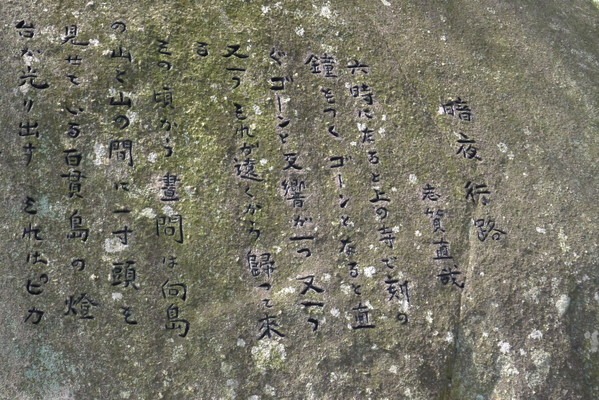 暗夜行路
志賀直哉
六時になると上の寺で刻の
鐘をつく ゴーンとなると直
ぐゴーンと反響が一つ 又一つ
又一つ それが遠くから歸って來
る
その頃から晝間は向島
の山と山の間に一寸頭を
見せている百貫島の燈
台が光り出す それはピカ